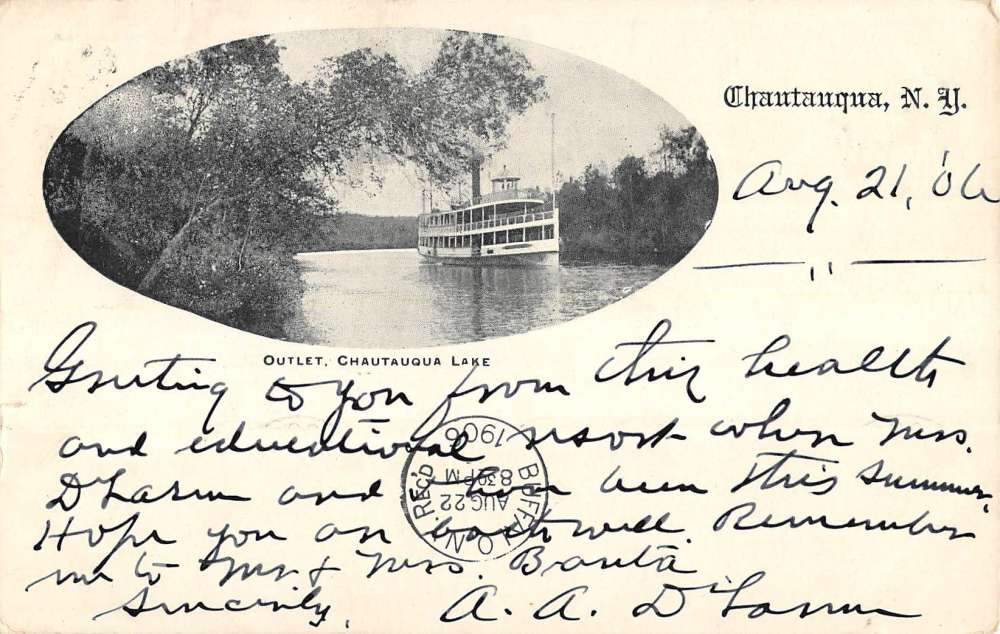 Chautauqua, N. Y.
Aug. 21, '06
OUTLET, CHAUTAUQUA LAKE
Greeting to you from this health
and educational resort where Mrs.
and I have been this summer.
Hope you are both well. Remember
me to Mr & Mrs. Banta
Sincerely,
A. A.
BUFFALO, N.Y. REC'D
AUG 22
8 30 PM
1906